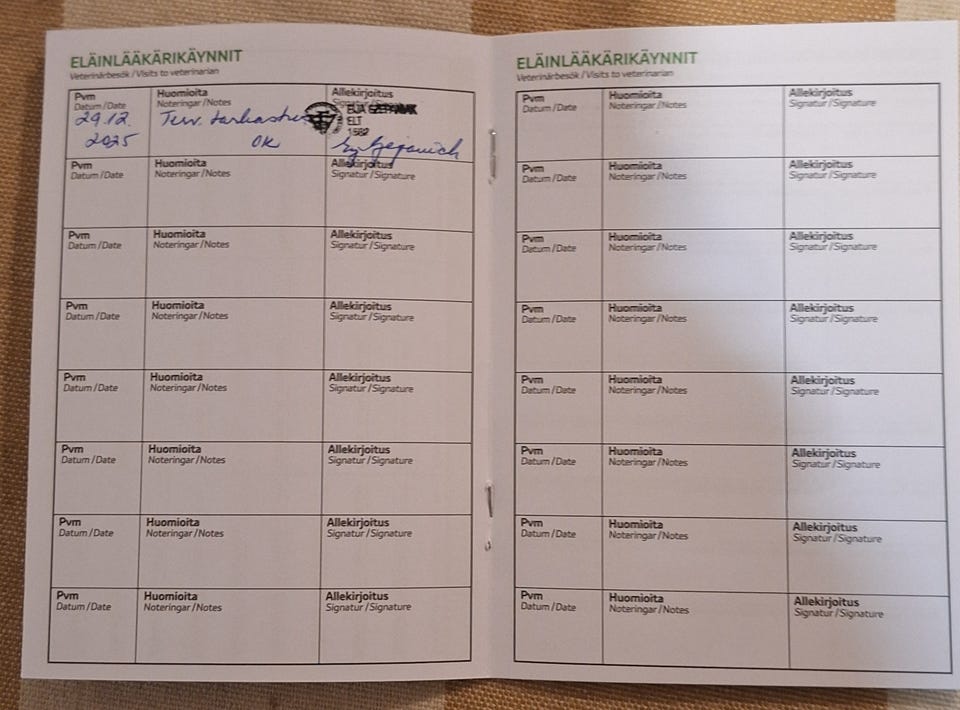 ELÄINLÄÄKÄRIKÄYNNIT
Veterinärbesök / Visits to veterinarian
Pvm Huomioita Allekirjoitus
Datum / Date Noteringar / Notes Signatur / Signature
29.12. Terv. tarkastus
ELT
1582
2025 OK
Pvm Huomioita Allekirjoitus
Datum / Date Noteringar / Notes Signatur / Signature
Pvm Huomioita Allekirjoitus
Datum / Date Noteringar / Notes Signatur / Signature
Pvm Huomioita Allekirjoitus
Datum / Date Noteringar / Notes Signatur / Signature
Pvm Huomioita Allekirjoitus
Datum / Date Noteringar / Notes Signatur / Signature
Pvm Huomioita Allekirjoitus
Datum / Date Noteringar / Notes Signatur / Signature
Pvm Huomioita Allekirjoitus
Datum / Date Noteringar / Notes Signatur / Signature
Pvm Huomioita Allekirjoitus
Datum / Date Noteringar / Notes Signatur / Signature
ELÄINLÄÄKÄRIKÄYNNIT
Veterinärbesök / Visits to veterinarian
Pvm Huomioita Allekirjoitus
Datum / Date Noteringar / Notes Signatur / Signature
Pvm Huomioita Allekirjoitus
Datum / Date Noteringar / Notes Signatur / Signature
Pvm Huomioita Allekirjoitus
Datum / Date Noteringar / Notes Signatur / Signature
Pvm Huomioita Allekirjoitus
Datum / Date Noteringar / Notes Signatur / Signature
Pvm Huomioita Allekirjoitus
Datum / Date Noteringar / Notes Signatur / Signature
Pvm Huomioita Allekirjoitus
Datum / Date Noteringar / Notes Signatur / Signature
Pvm Huomioita Allekirjoitus
Datum / Date Noteringar / Notes Signatur / Signature
Pvm Huomioita Allekirjoitus
Datum / Date Noteringar / Notes Signatur / Signature